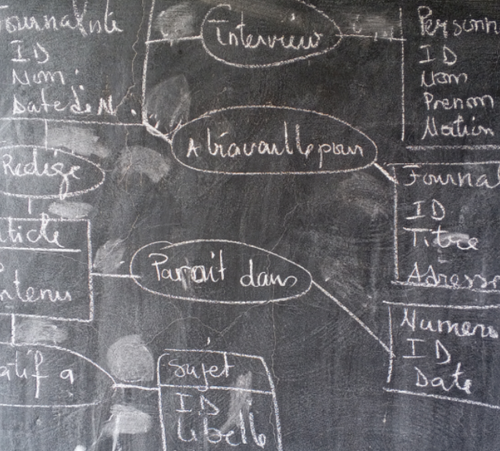 Journaliste
ID
Nom
Date de N.
Interview
Personn
ID
Nom
Prenom
Nation
A travaillé pour
Redige
Journal
ID
Titre
Adresse
rticle
ntenu
Parait dans
Numero
ID
Date
atif a
Sujet
ID
libelle